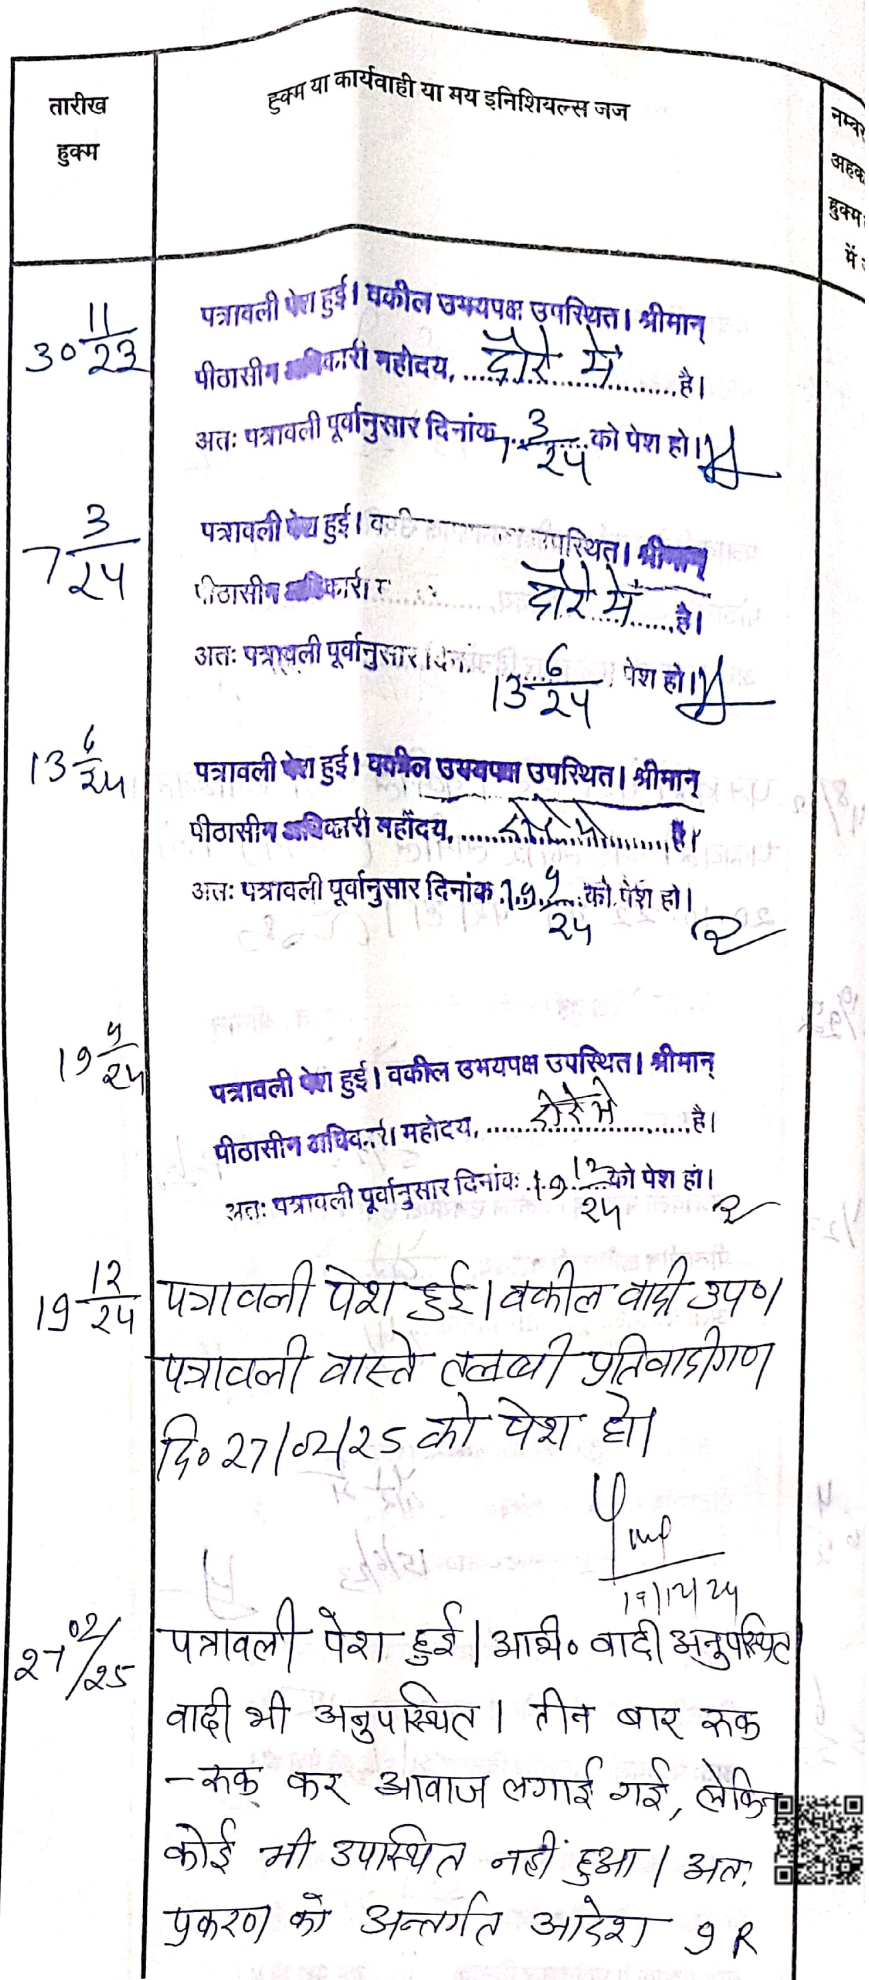 तारीख
हुक्म
हुक्म या कार्यवाही या मय इनिशियल्स जज
नम्बर
अहक
हुक्म
में
30 11/23
पत्रावली पेश हुई। वकील उभयपक्ष उपस्थित। श्रीमान्
पीठासीन अधिकारी महोदय, दौरे में है।
अतः पत्रावली पूर्वानुसार दिनांक 7 3/24 को पेश हो।
7 3/24
पत्रावली पेश हुई। उपस्थित। श्रीमान्
पीठासीन अधिकारी दौरे में है।
अतः पत्रावली पूर्वानुसार 13 6/24 पेश हो।
13 6/24
पत्रावली पेश हुई। वकील उभयपक्ष उपस्थित। श्रीमान्
पीठासीन अधिकारी महोदय, दौरे में है।
अतः पत्रावली पूर्वानुसार दिनांक 19 9/24 को पेश हो।
19 9/24
पत्रावली पेश हुई। वकील उभयपक्ष उपस्थित। श्रीमान्
पीठासीन अधिकारी महोदय, दौरे में है।
अतः पत्रावली पूर्वानुसार दिनांक 19 12/24 को पेश हो।
19 12/24
पत्रावली पेश हुई। वकील वादी उप०।
पत्रावली वास्ते तलबी प्रतिवादीगण
दि० 27/02/25 को पेश हो।
19/12/24
27 02/25
पत्रावली पेश हुई। अभि० वादी अनुपस्थित
वादी भी अनुपस्थित। तीन बार रूक
- रूक कर आवाज लगाई गई, लेकिन
कोई भी उपस्थित नहीं हुआ। अतः
प्रकरण को अन्तर्गत आदेश 9 R